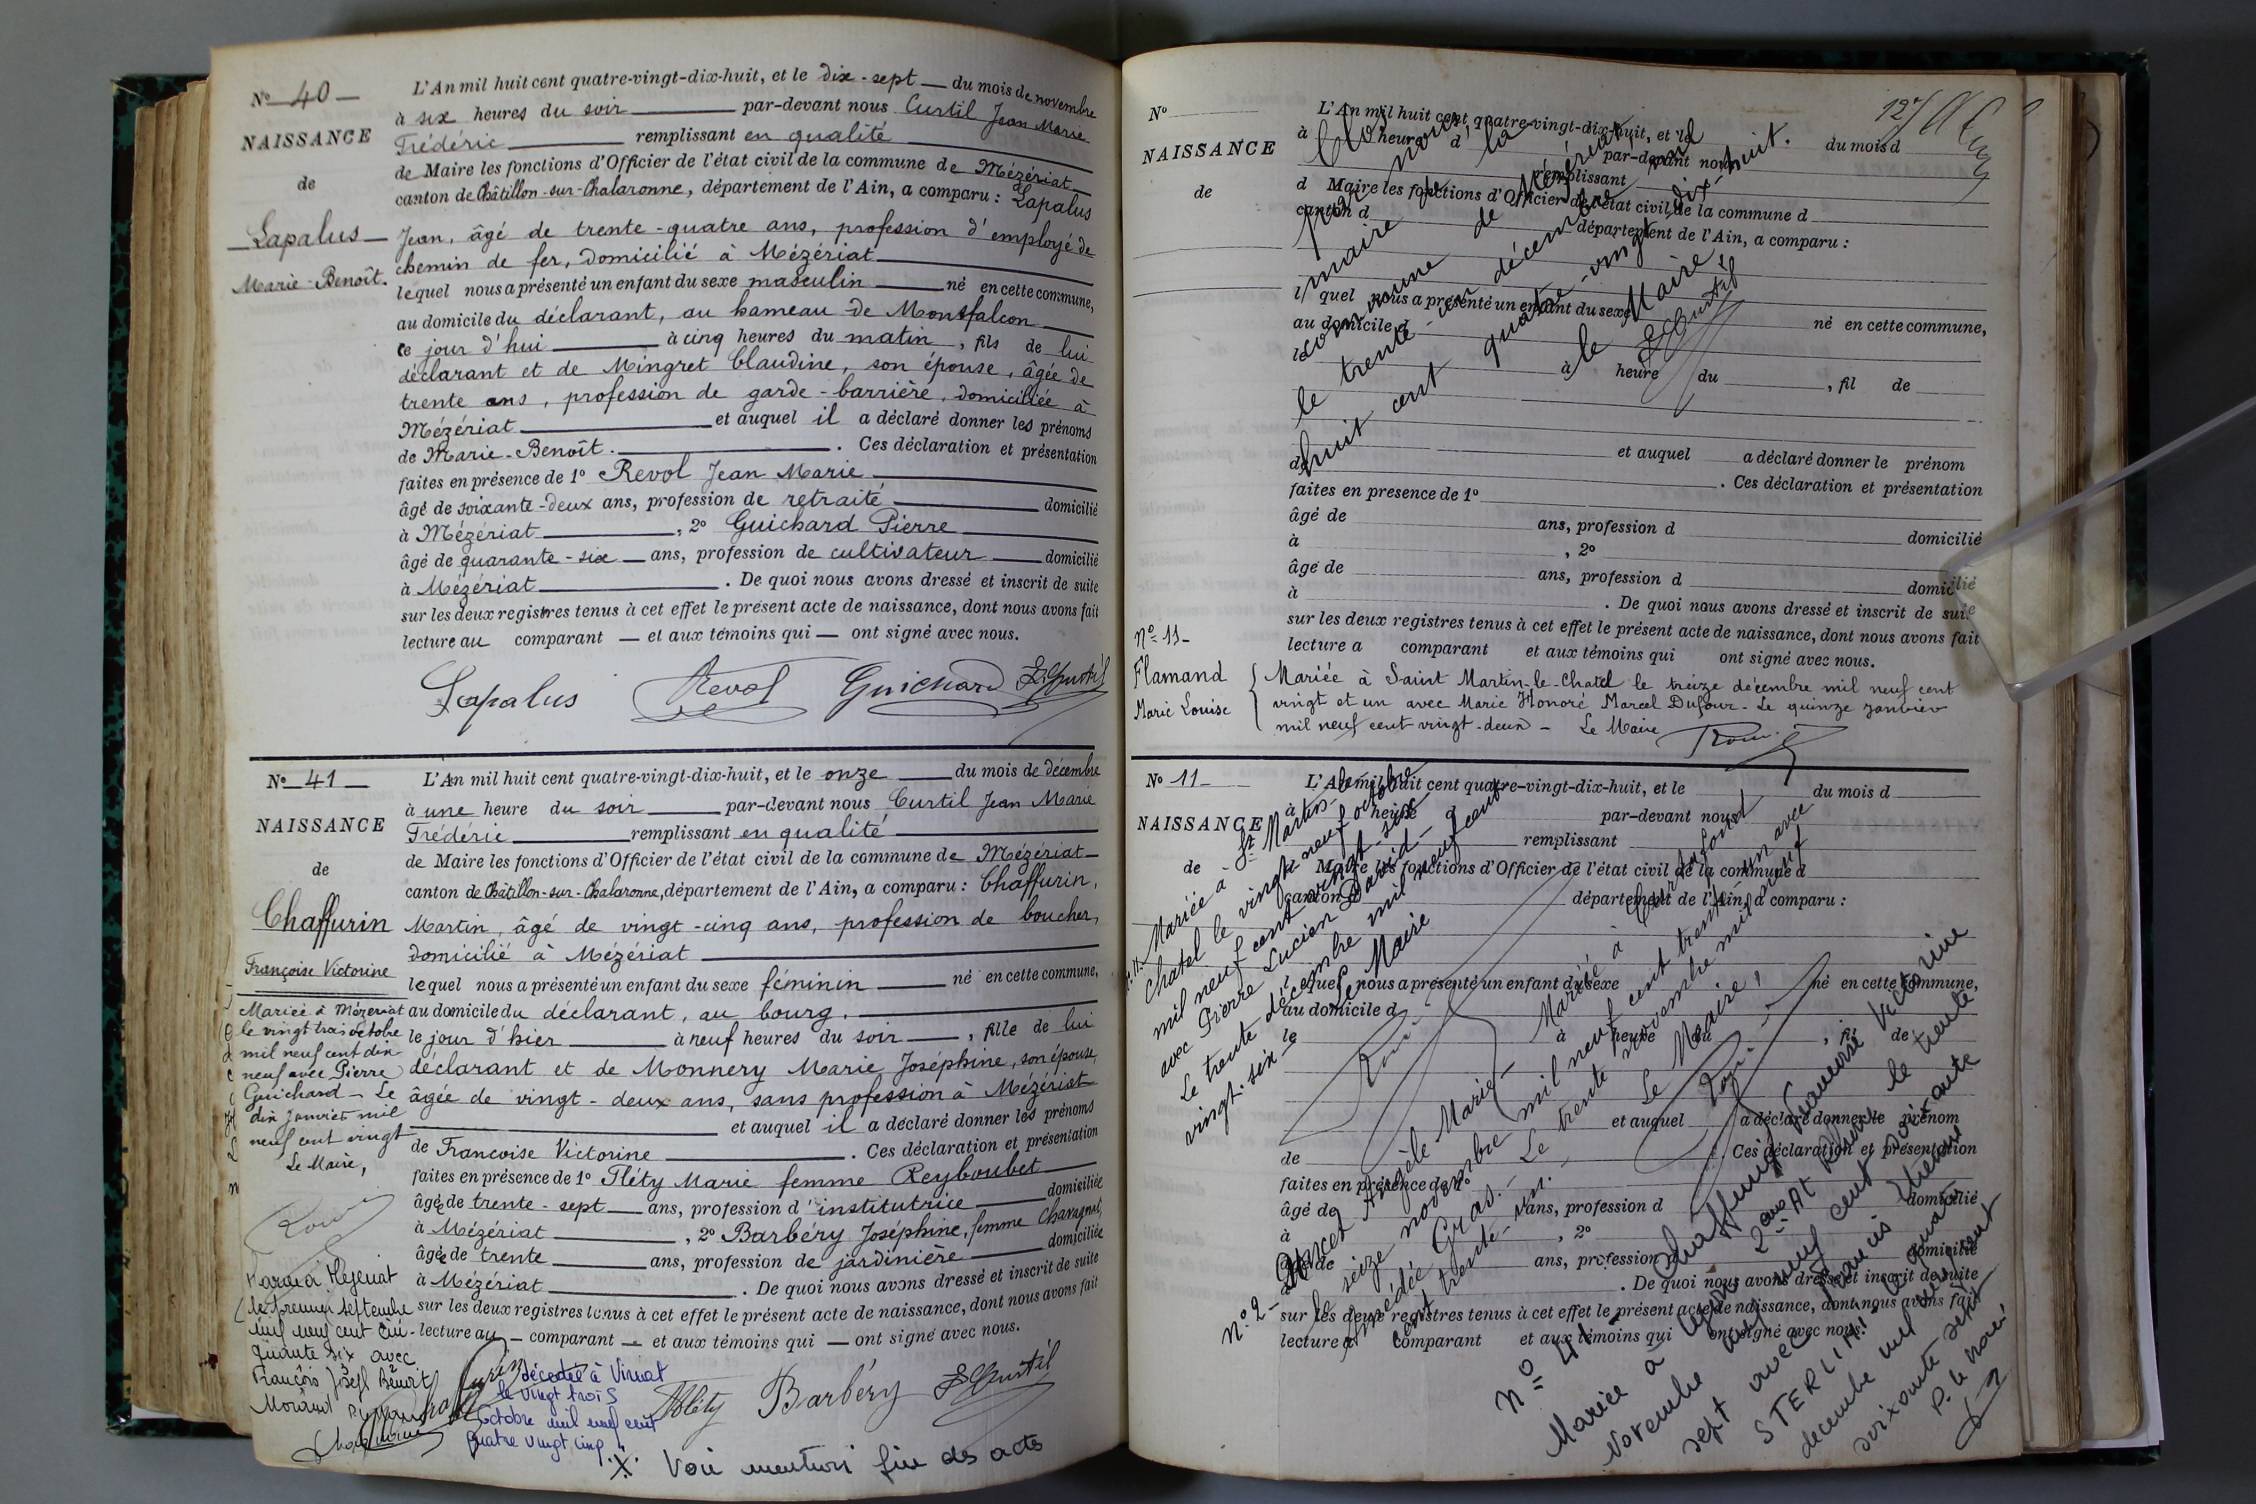 Nº 40
NAISSANCE
de
Lapalus
Marie-Benoît.
L'An mil huit cent quatre-vingt-dix-huit, et le dix-sept du mois de novembre
à six heures du soir par-devant nous Curtil Jean Marie
Frédéric remplissant en qualité
de Maire les fonctions d'Officier de l'état civil de la commune de Mézériat
canton de Châtillon-sur-Chalaronne, département de l'Ain, a comparu : Lapalus
Jean, âgé de trente-quatre ans, profession d'employé de
chemin de fer, domicilié à Mézériat
lequel nous a présenté un enfant du sexe masculin né en cette commune,
au domicile du déclarant, au hameau de Montfalcon
ce jour d'hui à cinq heures du matin, fils de lui
déclarant et de Mingret Claudine, son épouse, âgée de
trente ans, profession de garde-barrière, domiciliée à
Mézériat et auquel il a déclaré donner les prénoms
de Marie-Benoît. Ces déclaration et présentation
faites en présence de 1º Revol Jean Marie
âgé de soixante-deux ans, profession de retraité domicilié
à Mézériat, 2º Guichard Pierre
âgé de quarante-six ans, profession de cultivateur domicilié
à Mézériat. De quoi nous avons dressé et inscrit de suite
sur les deux registres tenus à cet effet le présent acte de naissance, dont nous avons fait
lecture au comparant et aux témoins qui ont signé avec nous.
Lapalus Revol Guichard F. Curtil
Nº 41
NAISSANCE
de
Chaffurin
Françoise Victorine
Mariée à Mézériat
le vingt trois octobre
mil neuf cent dix
neuf avec Pierre
Guichard - Le
dix janvier mil
neuf cent vingt
Le Maire,
le premier septembre
mil neuf cent cin-
quante six avec
François Joseph Benoît
Morand
L'An mil huit cent quatre-vingt-dix-huit, et le onze du mois de décembre
à une heure du soir par-devant nous Curtil Jean Marie
Frédéric remplissant en qualité
de Maire les fonctions d'Officier de l'état civil de la commune de Mézériat
canton de Châtillon-sur-Chalaronne, département de l'Ain, a comparu : Chaffurin,
Martin, âgé de vingt-cinq ans, profession de boucher,
domicilié à Mézériat
lequel nous a présenté un enfant du sexe féminin né en cette commune,
au domicile du déclarant, au bourg.
le jour d'hier à neuf heures du soir, fille de lui
déclarant et de Monnery Marie Joséphine, son épouse,
âgée de vingt-deux ans, sans profession à Mézériat
et auquel il a déclaré donner les prénoms
de Francoise Victorine. Ces déclaration et présentation
faites en présence de 1º Fléty Marie femme Reyboubet
âgée de trente-sept ans, profession d'institutrice domiciliée
à Mézériat, 2º Barbéry Joséphine, femme Chavagnat,
âgée de trente ans, profession de jardinière domiciliée
à Mézériat. De quoi nous avons dressé et inscrit de suite
sur les deux registres tenus à cet effet le présent acte de naissance, dont nous avons fait
lecture au comparant et aux témoins qui ont signé avec nous.
Fléty Barbéry F. Curtil
décédée à Viriat
le vingt trois
Octobre mil neuf cent
quatre vingt cinq
.X. Voir mention fin des actes
127
Nº
NAISSANCE
de
L'An mil huit cent quatre-vingt-dix-huit, et le du mois d
à heure d par-devant nous
remplissant
d Maire les fonctions d'Officier de l'état civil de la commune d
canton d département de l'Ain, a comparu :
l quel nous a présenté un enfant du sexe né en cette commune,
au domicile d
le à heure du , fil de
et auquel a déclaré donner le prénom
de . Ces déclaration et présentation
faites en présence de 1º
âgé de ans, profession d domicilié
à , 2º
âgé de ans, profession d domicilié
à . De quoi nous avons dressé et inscrit de suite
sur les deux registres tenus à cet effet le présent acte de naissance, dont nous avons fait
lecture a comparant et aux témoins qui ont signé avec nous.
Clos
par nous
maire de la
commune de Mézériat,
le trente-un décembre mil
huit cent quatre-vingt-dix-huit.
le Maire
F. Curtil
Nº 11
Flamand
Marie Louise
Mariée à Saint Martin-le-Chatel le treize décembre mil neuf cent
vingt et un avec Marie Honoré Marcel Dufour - Le quinze janvier
mil neuf cent vingt-deux - Le Maire
Nº 11
NAISSANCE
de
L'An mil huit cent quatre-vingt-dix-huit, et le du mois d
à heure d par-devant nous
remplissant
Maire les fonctions d'Officier de l'état civil de la commune d
canton d département de l'Ain, a comparu :
l quel nous a présenté un enfant du sexe né en cette commune,
au domicile d
le à heure du , fil de
et auquel a déclaré donner le prénom
de . Ces déclaration et présentation
faites en présence de 1º
âgé de ans, profession d domicilié
à , 2º
âgé de ans, profession d domicilié
. De quoi nous avons dressé et inscrit de suite
sur les deux registres tenus à cet effet le présent acte de naissance, dont nous avons fait
lecture a comparant et aux témoins qui ont signé avec nous.
Mariée à St Martin-le-
Chatel le vingt-neuf octobre
mil neuf cent vingt-six
avec Pierre Lucien David -
Le trente décembre mil neuf cent
vingt-six - Le Maire
Nº 2 - Angèle Marie - Mariée à
le seize novembre mil neuf cent trente-un avec
Amédée Gras. - Le trente novembre mil neuf
cent trente-un. Le Maire,
Nº 41. Chaffurin Francoise Victorine
Mariée à
Novembre mil neuf cent soixante
sept avec Francis Etienne
STERLIN. Le quatre
décembre mil neuf cent
soixante sept
P. le Maire